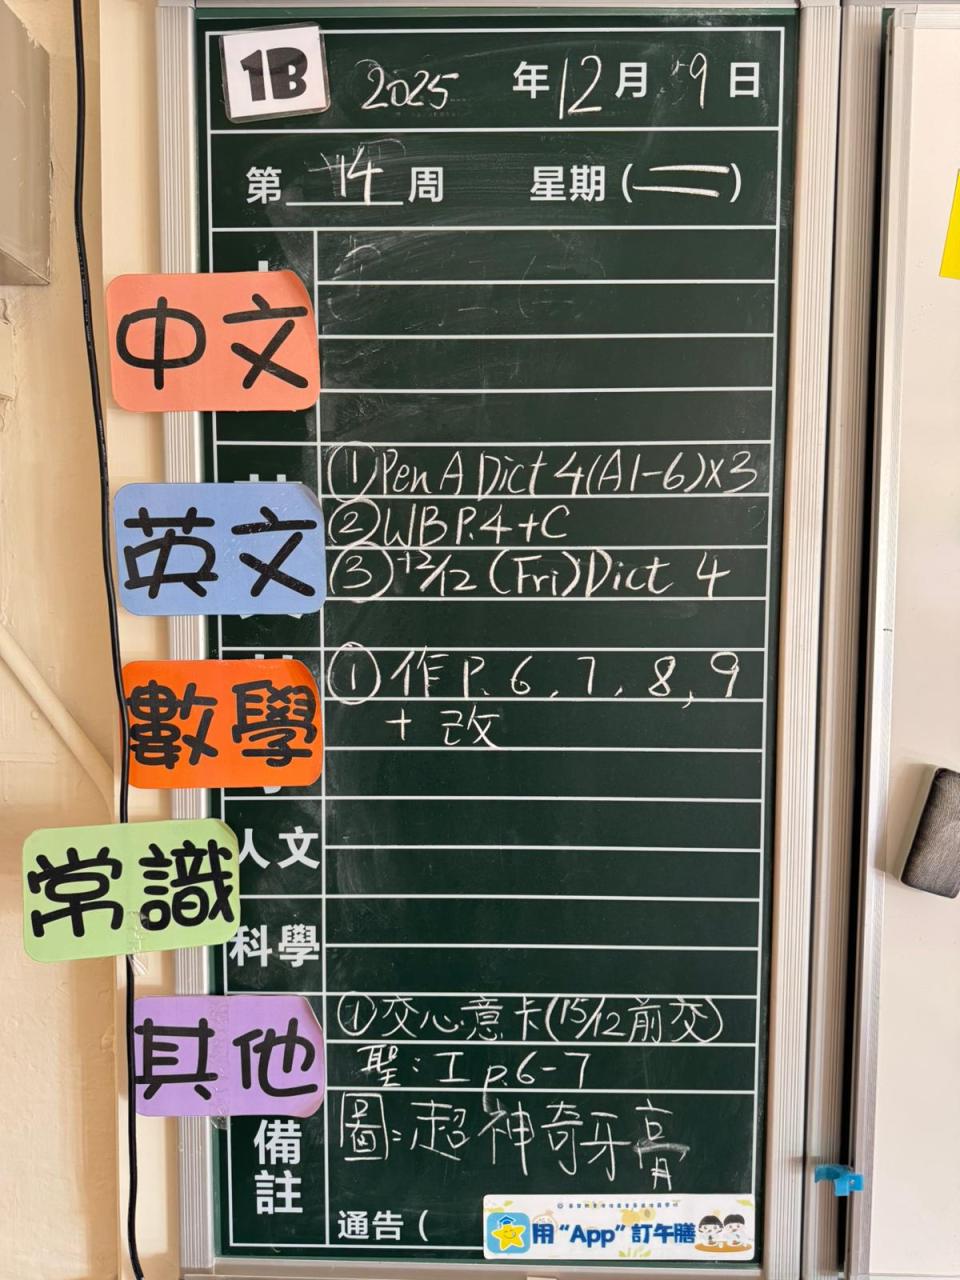 1B 2025 年 12 月 9 日
第 14 周 星期 (二)
中文
英文
①Pen A Dict 4(A1-6)x3
②WB P.4+C
③12/12 (Fri) Dict 4
數學
①作 P. 6, 7, 8, 9
+ 改
人文
常識
科學
其他
①交心意卡(15/12前交)
聖:工 p.6-7
備註
圖:超神奇牙膏
通告 (
用 “App” 訂午膳